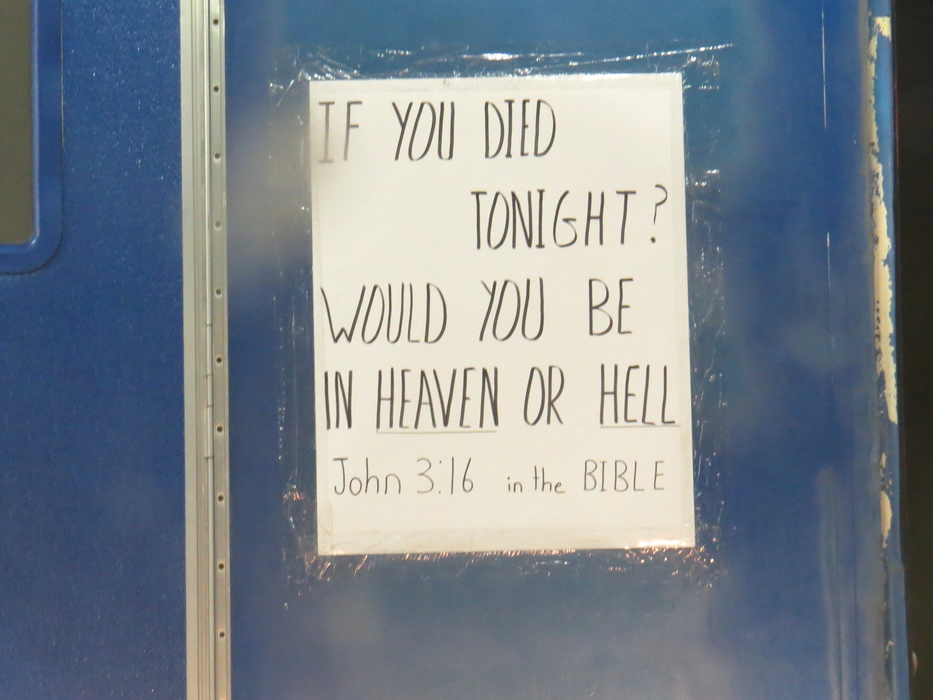 IF YOU DIED
TONIGHT?
WOULD YOU BE
IN HEAVEN OR HELL
John 3:16 in the BIBLE